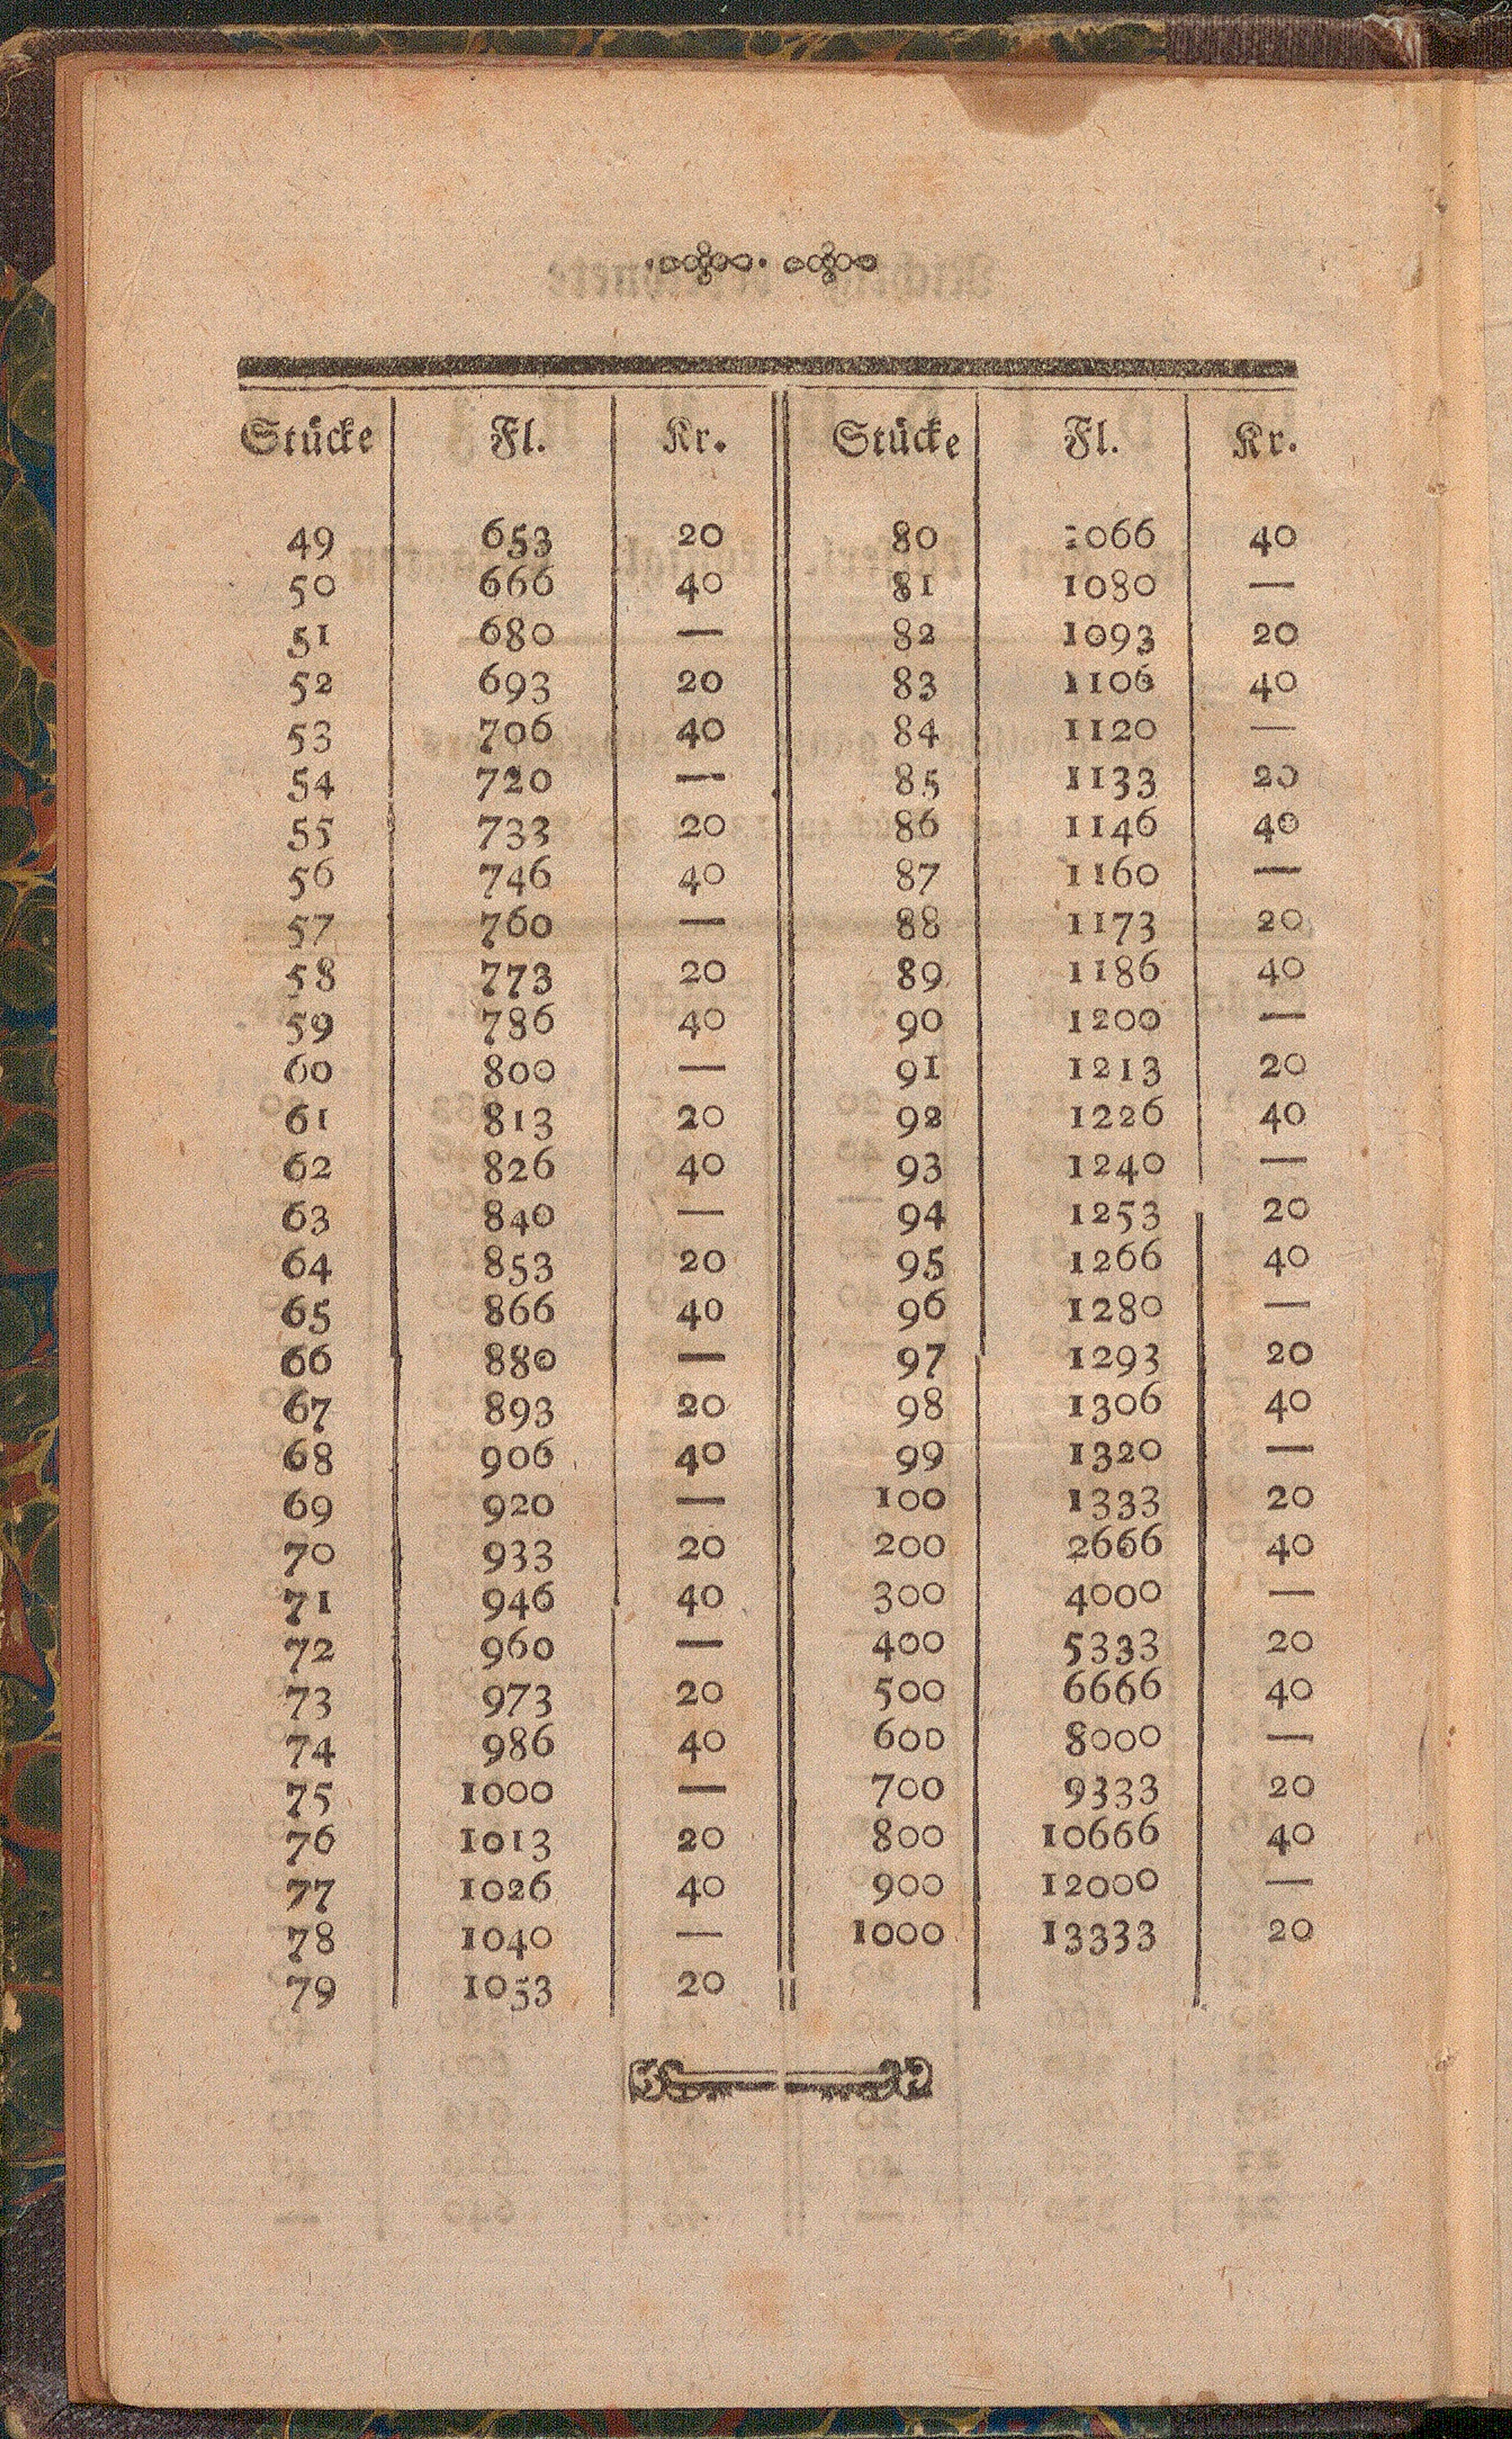 Stücke Fl. Kr. Stücke Fl. Kr.
49 653 20 80 1066 40
50 666 40 81 1080 —
51 680 — 82 1093 20
52 693 20 83 1106 40
53 706 40 84 1120 —
54 720 — 85 1133 20
55 733 20 86 1146 40
56 746 40 87 1160 —
57 760 — 88 1173 20
58 773 20 89 1186 40
59 786 40 90 1200 —
60 800 — 91 1213 20
61 813 20 92 1226 40
62 826 40 93 1240 —
63 840 — 94 1253 20
64 853 20 95 1266 40
65 866 40 96 1280 —
66 880 — 97 1293 20
67 893 20 98 1306 40
68 906 40 99 1320 —
69 920 — 100 1333 20
70 933 20 200 2666 40
71 946 40 300 4000 —
72 960 — 400 5333 20
73 973 20 500 6666 40
74 986 40 600 8000 —
75 1000 — 700 9333 20
76 1013 20 800 10666 40
77 1026 40 900 12000 —
78 1040 — 1000 13333 20
79 1053 20